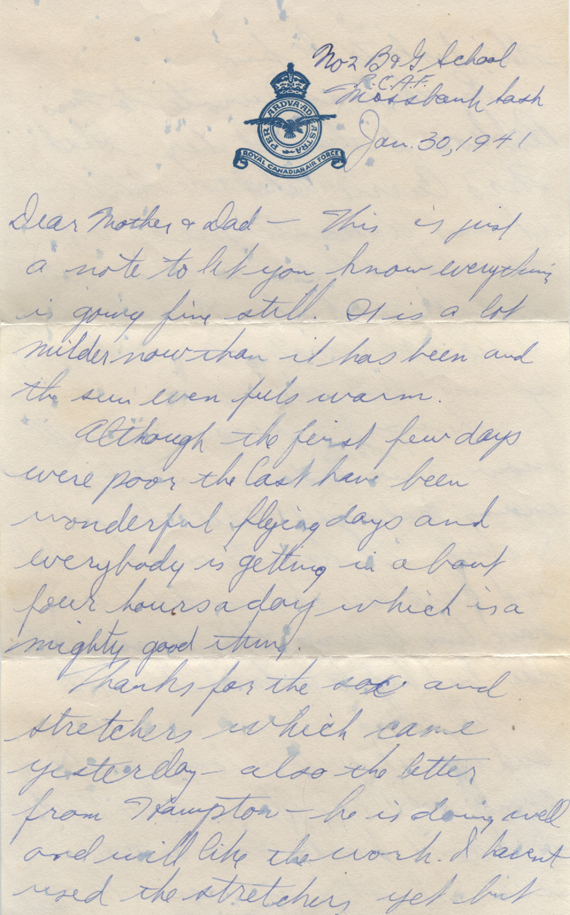 No 2 B & G School
R.C.A.F.
Mossbank Sask
Jan. 30, 1941
PER ARDVA AD ASTRA
ROYAL CANADIAN AIR FORCE
Dear Mother & Dad — This is just
a note to let you know everything
is going fine still. It is a lot
milder now than it has been and
the sun even feels warm.
Although the first few days
were poor the last have been
wonderful flying days and
everybody is getting in about
four hours a day which is a
mighty good thing.
Thanks for the sox and
stretchers which came
yesterday – also the letter
from Hampton – he is doing well
and will like the work. I havent
used the stretchers yet but